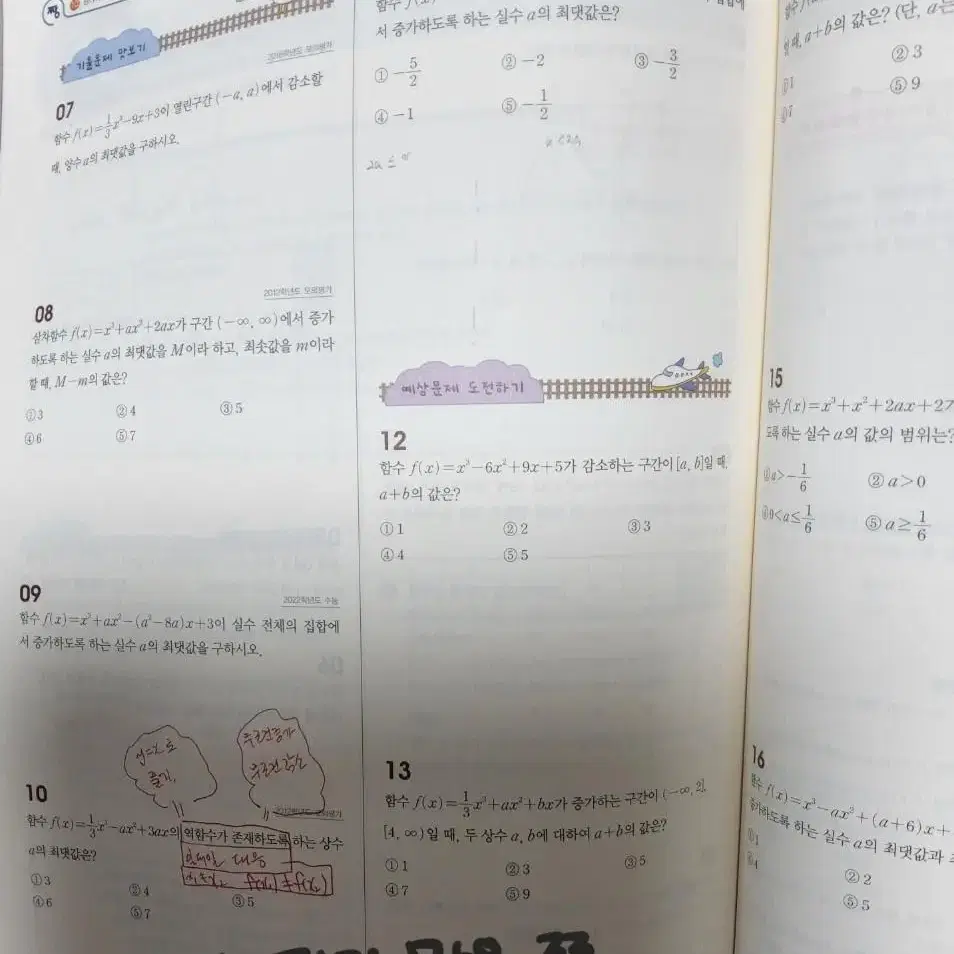 짱
기출문제 맛보기
07
함수 f(x)=1/3x³-9x+3이 열린구간 (-a, a)에서 감소할
때, 양수 a의 최댓값을 구하시오.
2012학년도 모의평가
08
삼차함수 f(x)=x³+ax²+2ax가 구간 (-∞, ∞)에서 증가
하도록 하는 실수 a의 최댓값을 M이라 하고, 최솟값을 m이라
할 때, M-m의 값은?
① 3 ② 4 ③ 5
④ 6 ⑤ 7
2022학년도 수능
09
함수 f(x)=x³+ax²-(a²-8a)x+3이 실수 전체의 집합에
서 증가하도록 하는 실수 a의 최댓값을 구하시오.
y=x로
무조건증가
무조건감소
10
함수 f(x)=1/3x³-ax²+3ax의 역함수가 존재하도록 하는 상수
a의 최댓값은?
일대일 대응
f(x₁)≠f(x₂)
① 3 ② 4 ③ 5
④ 6 ⑤ 7
서 증가하도록 하는 실수 a의 최댓값은?
① -5/2 ② -2 ③ -3/2
④ -1 ⑤ -1/2
예상문제 도전하기
12
함수 f(x)=x³-6x²+9x+5가 감소하는 구간이 [a, b]일 때,
a+b의 값은?
① 1 ② 2 ③ 3
④ 4 ⑤ 5
13
함수 f(x)=1/3x³+ax²+bx가 증가하는 구간이 (-∞, 2],
[4, ∞)일 때, 두 상수 a, b에 대하여 a+b의 값은?
① 1 ② 3 ③ 5
④ 7 ⑤ 9
일 때, a+b의 값은? (단, a는
① 1 ② 3
⑤ 9
15
함수 f(x)=x³+x²+2ax+2가
도록 하는 실수 a의 값의 범위는?
① a>-1/6 ② a>0
④ 0<a≤1/6 ⑤ a≥1/6
16
함수 f(x)=x³-ax²+(a+6)x+
증가하도록 하는 실수 a의 최댓값과
① 1 ② 2
④ 4 ⑤ 5